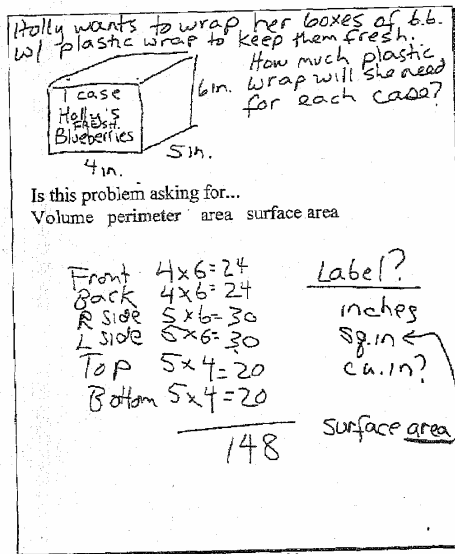 Holly wants to wrap her boxes of b.b.
w/ plastic wrap to keep them fresh.
How much plastic
wrap will she need
for each case?
1 case
Holly's
FRESH
Blueberries
6in.
5in.
4in.
Is this problem asking for...
Volume perimeter area surface area
Front 4x6=24
Back 4x6=24
R side 5x6=30
L side 5x6=30
Top 5x4=20
Bottom 5x4=20
148
Label?
inches
sq.in
cu.in?
surface area